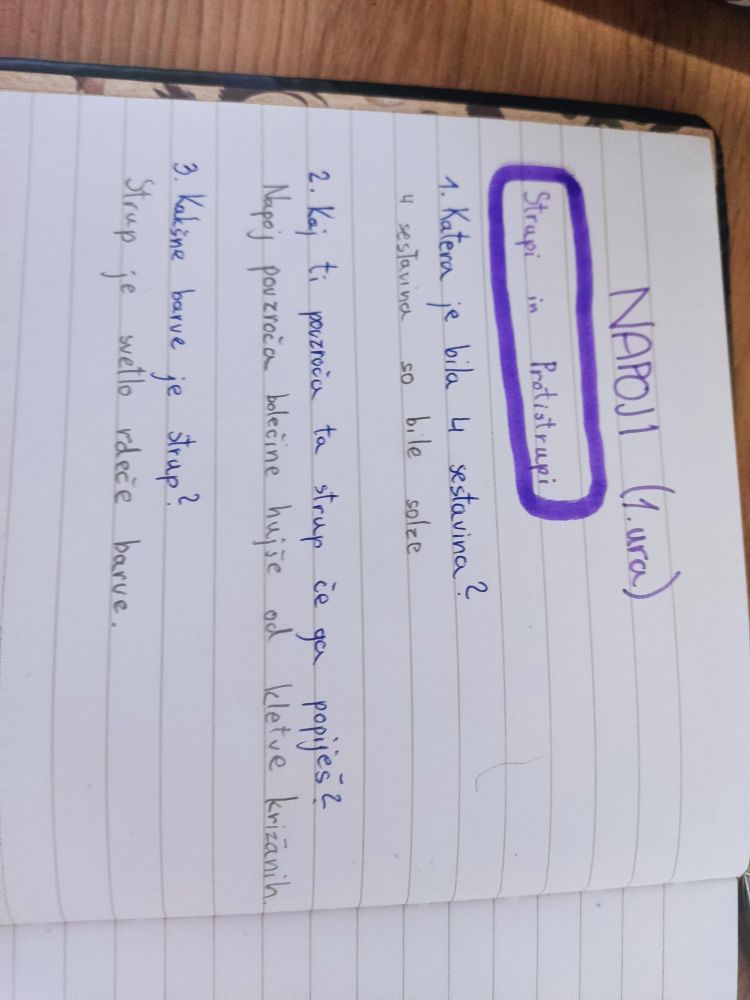 NAPOJI (1.ura)
Strupi in Protistrupi
1. Katera je bila 4 sestavina?
4 sestavina so bile solze
2. Kaj ti povzroča ta strup če ga popiješ?
Napoj povzroča bolečine hujše od kletve križanih.
3. Kakšne barve je strup?
Strup je svetlo rdeče barve.